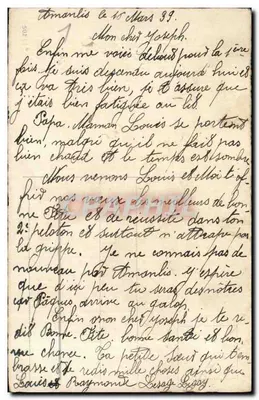 Amanlis le 18 Mars 39.
Mon cher Joseph.
Enfin me voici debout pour la 1ère
fois je suis descendu aujourd'hui et
ça va très bien, je t'assure que
j'étais bien fatiguée au lit
Papa. Maman Louis se portent
bien, malgré qu'il ne fait pas
bien chaud et le temps est sombre
Nous venons Louis et Moi t'of
frir nos vœux les meilleurs de bon
ne Fête et de réussite dans ton
2e peloton et surtout n'attrape pas
la grippe. Je ne connais pas de
nouveau par Amanlis. J'espère
que d'ici peu tu seras des nôtres
car Pâques arrive au galop.
Enfin mon cher Joseph je te re
dis Bonne Fête, bonne santé et bon
ne chance. Ta petite Sœur qui t'em
brasse et te redis mille choses ainsi que
Louis et Raymonde